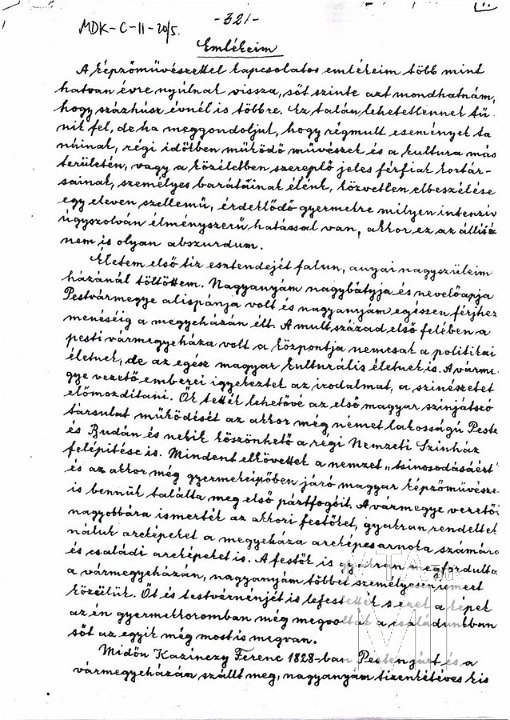 MDK-C-II-20/5.
-321-
Emlékeim
A képzőművészettel kapcsolatos emlékeim több mint
hatvan évre nyúlnak vissza, sőt szinte azt mondhatnám,
hogy százhúsz évnél is többre. Ez talán lehetetlennek tű-
nik fel, de ha meggondoljuk, hogy régmult események ta-
nuinak, régi időkben működő művészek és a kultura más
területén, vagy a közéletben szereplő jeles férfiak kortár-
sainak, személyes barátainak élénk, közvetlen elbeszélése
egy eleven szellemű, érdeklődő gyermekre milyen intenzív
úgyszólván élményszerű hatással van, akkor ez az állítás
nem is olyan abszurdum.
Életem első tíz esztendejét falun, anyai nagyszüleim
házánál töltöttem. Nagyanyám nagybátyja és nevelőapja
Pestvármegye alispánja volt és nagyanyám egészen férjhez
menéséig a megyeházán élt. A mult század első felében a
pesti vármegyeháza volt a központja nemcsak a politikai
életnek, de az egész magyar kulturális életnek is. A várme-
gye vezető emberei igyekeztek az irodalmat, a színészetet
előmozdítani. Ők tették lehetővé az első magyar színjátszó
társulat működését az akkor még német lakosságú Pesten
és Budán és nekik köszönhető a régi Nemzeti Színház
felépítése is. Mindent elkövettek a nemzet „csinosodásáért"
és az akkor még gyermekcipőben járó magyar képzőművészet
is bennük találta meg első pártfogóit. A vármegye vezetői
nagyobbára ismerték az akkori festőket, gyakran rendeltek
náluk arcképeket a megyeháza arcképcsarnoka számára
és családi arcképeket is. A festők is gyakran megfordultak
a vármegyeházán, nagyanyám többet személyesen ismert
közülük. Őt és testvérnénjét is lefestették s ezek a képek
az én gyermekkoromban még megvoltak a családunkban
sőt az egyik még most is megvan.
Midőn Kazinczy Ferenc 1828-ban Pesten járt és a
vármegyeházán szállt meg, nagyanyám tizenkétéves kis